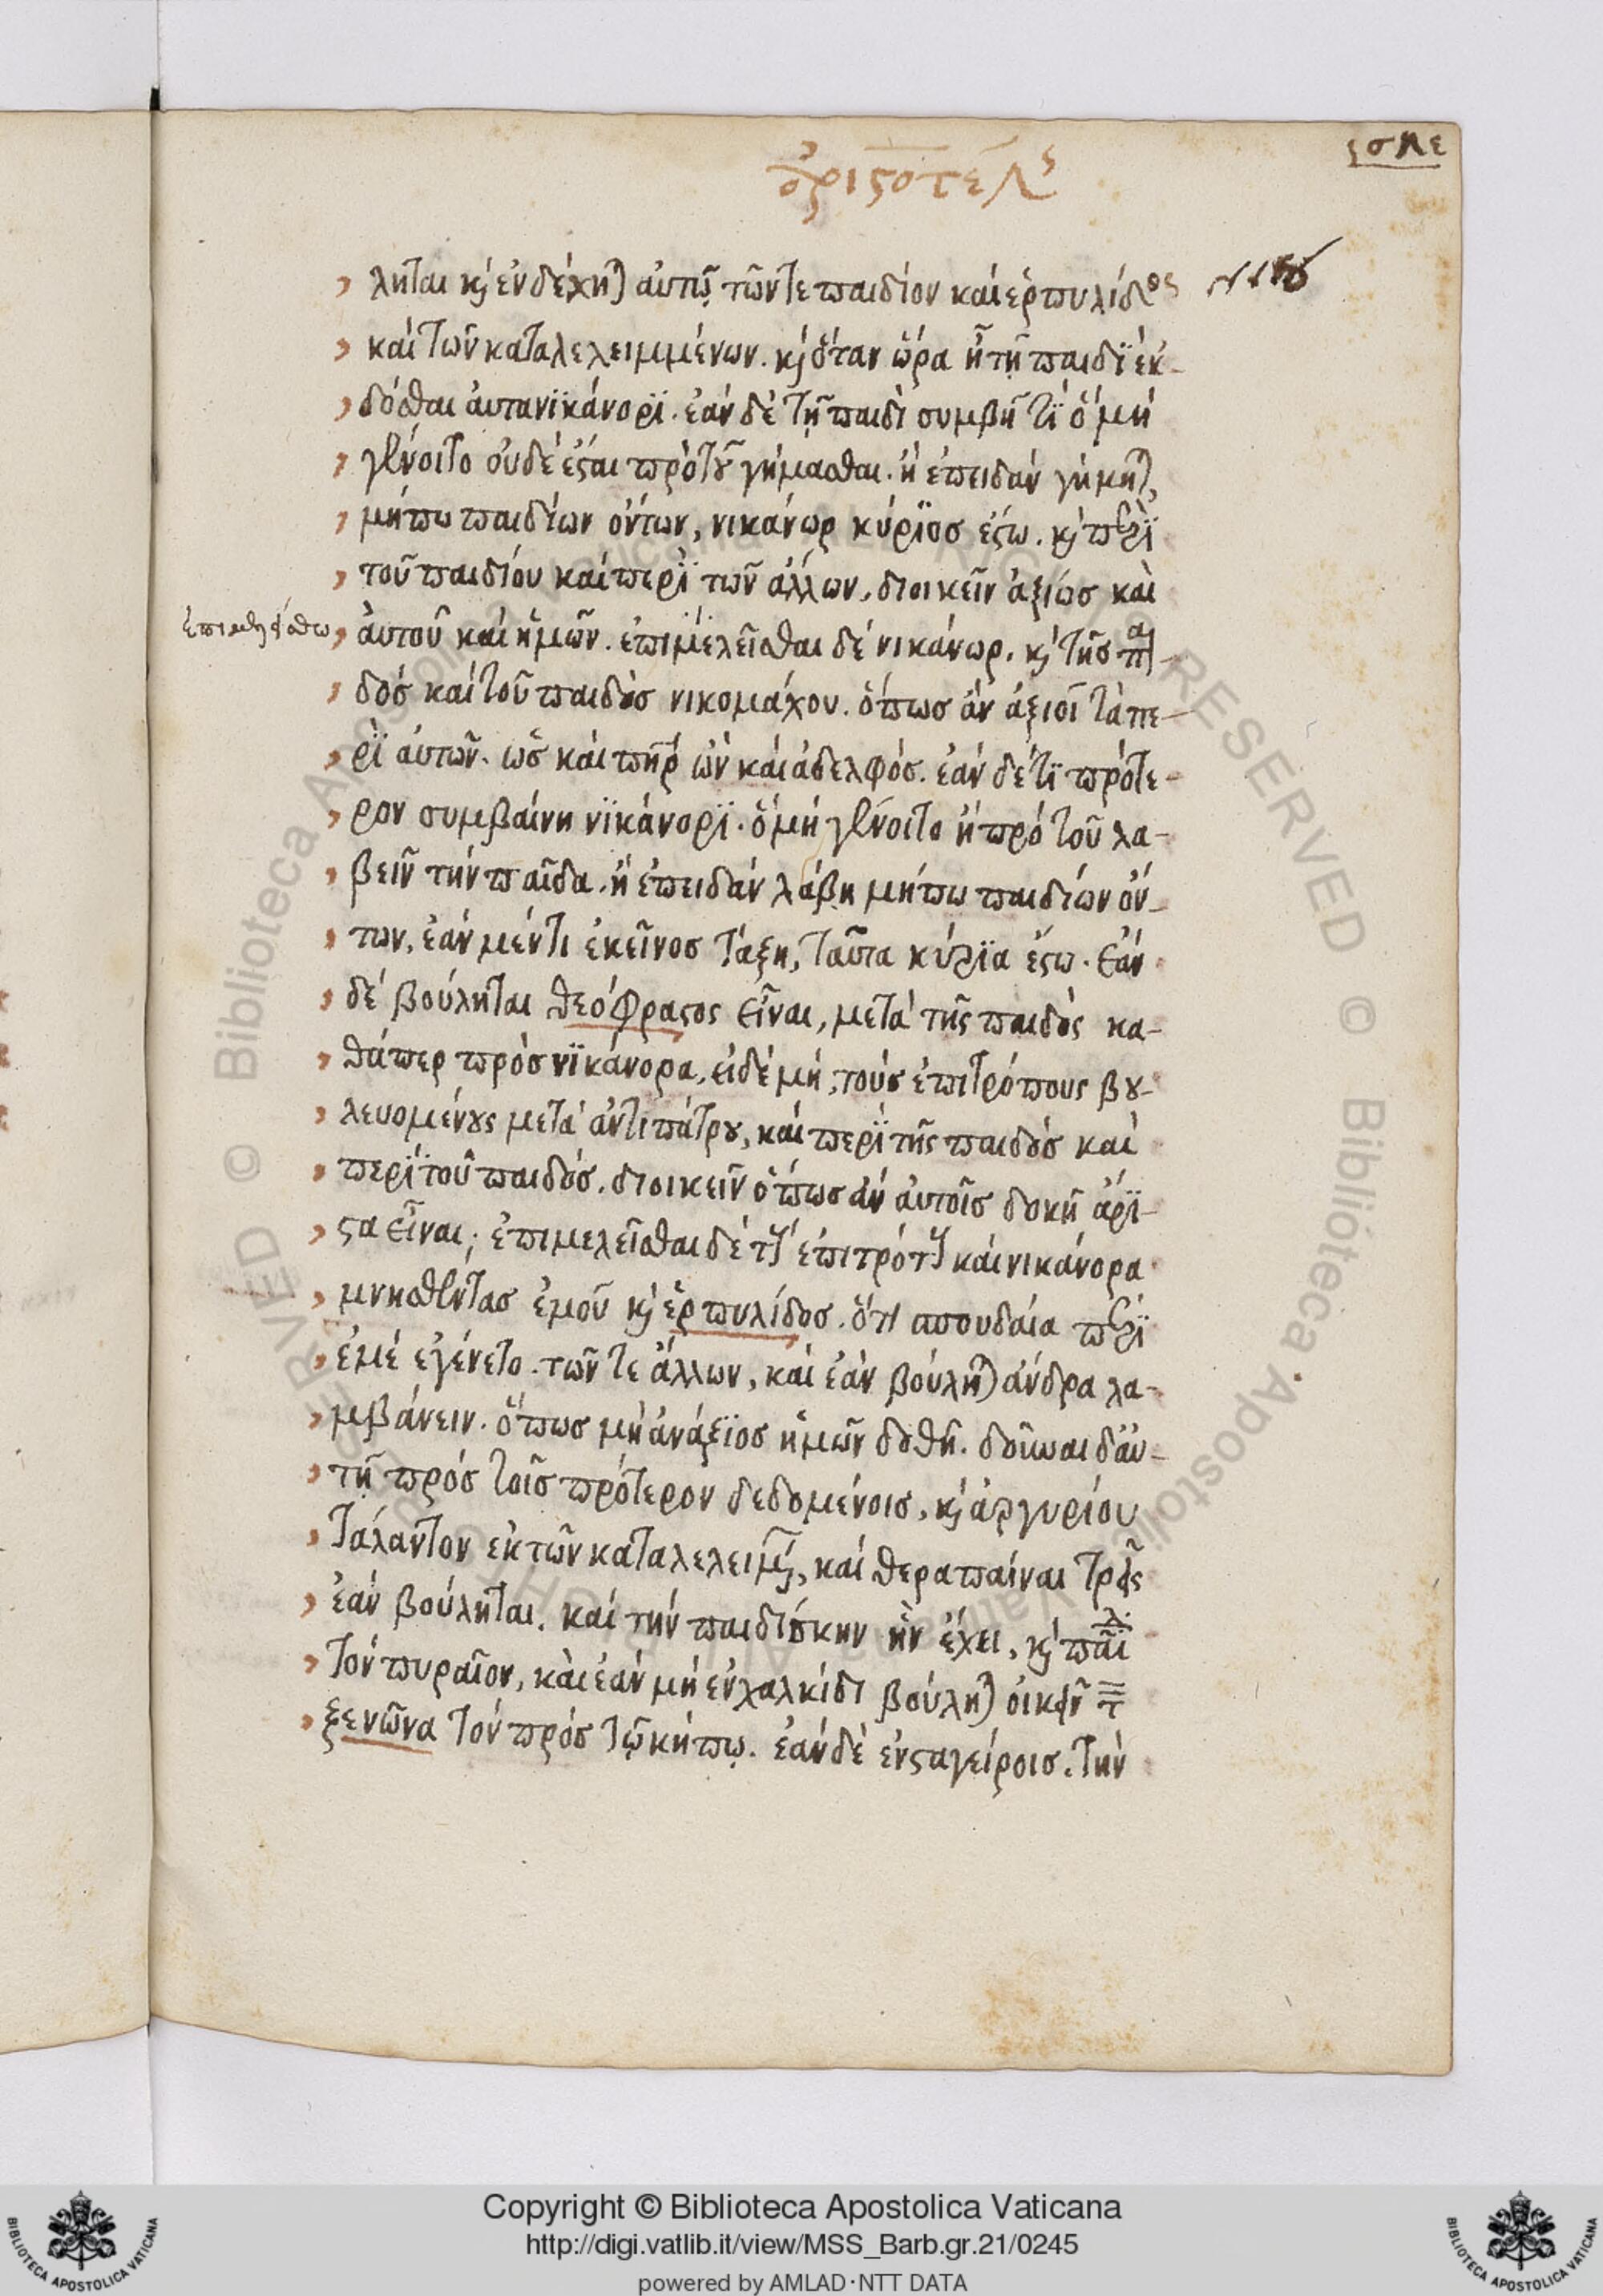 ἀριστοτέλς
ληται κ̀ ἐνδέχητ(αι) αὐτῷ τῶν τε παιδίον καὶ ἑρπυλίδος
καὶ τῶν καταλελειμμένων. κ̀ ὅταν ὥρα ἦ τῇ παιδϊ ἐκ-
δόσθαι ἀυτα νϊκάνορϊ. ἐὰν δὲ τῇ παιδὶ συμβῆ τϊ ὅ μὴ
γένοιτο οὐδὲ ἔσται πρὸ τοῦ γήμασθαι. ἢ ἐπειδὰν γήμητ(αι),
μήπω παιδίων ὄντων, νικάνωρ κύρϊοσ ἔστω. κ̀ περϊ
τοῦ παιδίου καὶ περϊ τῶν ἄλλων, διοικεῖν ἀξίωσ καὶ
ἐπιμελείσθω
ἀυτοῦ καὶ ἡμῶν. ἐπιμελεῖσθαι δὲ νικάνωρ. κ̀ τῆσ παι-
δὸσ καὶ τοῦ παιδὸσ νικομάχου. ὅπωσ ἂν ἀξιοῖ τὰ πε-
ρϊ αὐτῶν. ὡσ καὶ πὴρ ὢν καὶ ἀδελφόσ. ἐὰν δέ τϊ πρότε-
ρον συμβαίνη νϊκάνορϊ. ὅ μὴ γένοιτο ἢ πρὸ τοῦ λα-
βεῖν τὴν παῖδα. ἢ ἐπειδὰν λάβη μήπω παιδίων ὄν-
των, ἐὰν μέν τι ἐκεῖνοσ τάξη, ταῦτα κύρϊα ἔστω. ἐὰν
δὲ βούληται θεόφραστος εἶναι, μετὰ τῆς παιδὸς κα-
θάπερ πρὸσ νϊκάνορα, εἰ δὲ μὴ, τοὺσ ἐπιτρόπους βου-
λευομένους μετὰ ἀντιπάτρου, καὶ περὶ τῆς παιδὸσ καὶ
περϊ τοῦ παιδὸσ. διοικεῖν ὅπωσ ἂν αὐτοῖσ δοκῆ ἄρϊ-
στα εἶναι; ἐπιμελεῖσθαι δὲ τοὺς ἐπιτρόπους καὶ νικάνορα
μνησθέντασ ἐμοῦ κ̀ ἑρπυλίδοσ. ὅτι σπουδαία περϊ
ἐμὲ ἐγένετο. τῶν τε ἄλλων, καὶ ἐὰν βούλητ(αι) ἄνδρα λα-
μβάνειν. ὅπωσ μὴ ἀνάξϊοσ ἡμῶν δοθῆ. δοῦναι δ' ἀυ-
τῇ πρὸσ τοῖσ πρότερον δεδομένοισ, κ̀ ἀργυρίου
τάλαντον ἐκ τῶν καταλελειμμ, καὶ θεραπαίναι τρεῖς
ἐὰν βούληται. καὶ τὴν παιδίσκην ἣν ἔχει, κ̀ παῖδα
τὸν πυραῖον, καὶ ἐὰν μὴ ἐν χαλκίδι βούλητ(αι) οἰκεῖν τ
ξενῶνα τὸν πρὸσ τῷ κήπῳ. ἐὰν δὲ ἐν σταγείροισ. τὴν
Copyright © Biblioteca Apostolica Vaticana
http://digi.vatlib.it/view/MSS_Barb.gr.21/0245
powered by AMLAD·NTT DATA
BIBLIOTECA APOSTOLICA VATICANA
BIBLIOTECA APOSTOLICA VATICANA